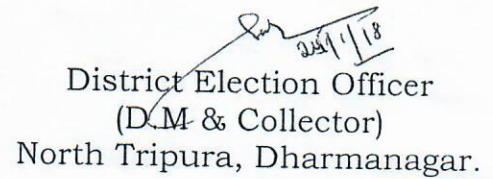 District Election Officer
(D.M & Collector)
North Tripura, Dharmanagar.